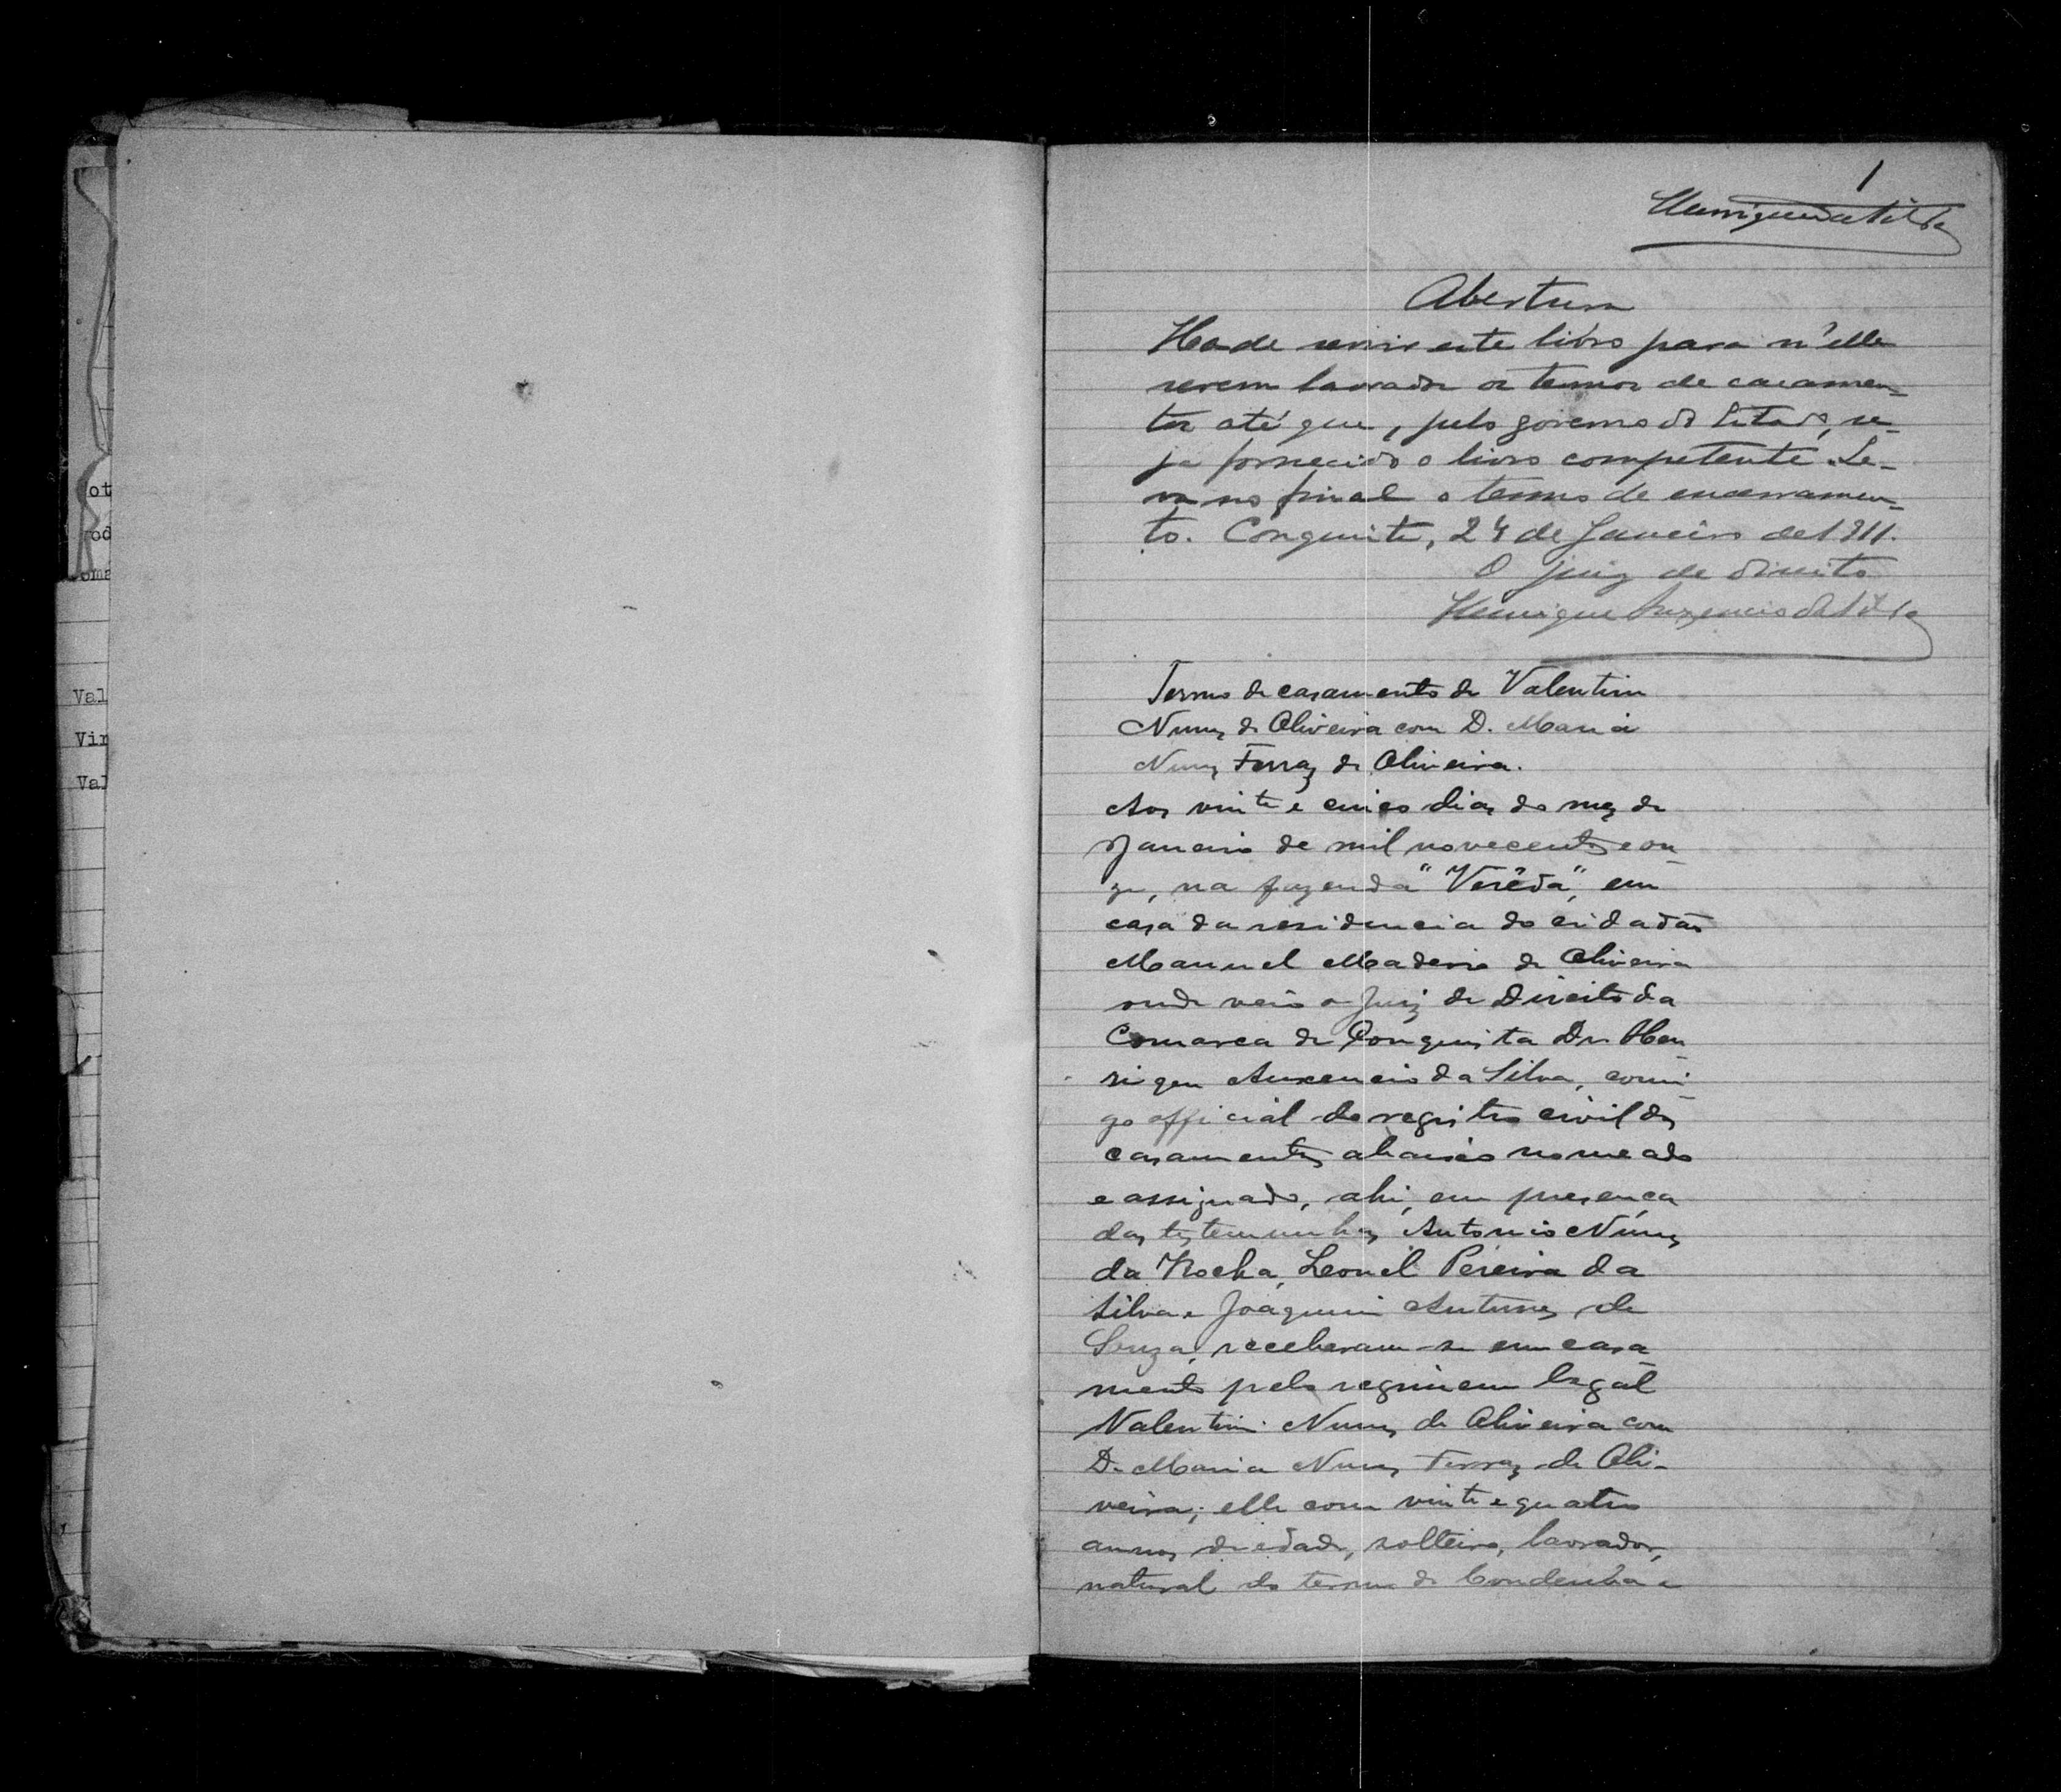 ot
od
oma
Val
Vir
Val
1
Henrique da Silva
Abertura
Ha de servir este livro para n'elle
serem lavrados os termos de casamen-
tos até que, pelo governo do Estado, se-
ja fornecido o livro competente. Le-
va no final o termo de encerramen-
to. Conquista, 24 de Janeiro de 1911.
O juiz de direito
Henrique Auxencio da Silva
Termo de casamento de Valentim
Nunes de Oliveira com D. Maria
Nunes Ferraz de Oliveira.
Aos vinte e cinco dias do mez de
Janeiro de mil novecentos e on-
ze, na fazenda "Verêda", em
casa da residencia do cidadão
Manuel Madeira de Oliveira
onde veio o Juiz de Direito da
Comarca de Conquista Dr. Hen
rique Auxencio da Silva, comi-
go official do registro civil dos
casamentos abaixo nomeado
e assignado, ahi, em presença
das testemunhas Antonio Nunes
da Rocha, Leonel Pereira da
Silva e Joaquim Antunes de
Souza, receberam-se em casa-
mento pelo regimem legal
Valentim Nunes de Oliveira com
D. Maria Nunes Ferraz de Oli-
veira; elle com vinte e quatro
annos de edade, solteiro, lavrador,
natural do termo de Condeúba e